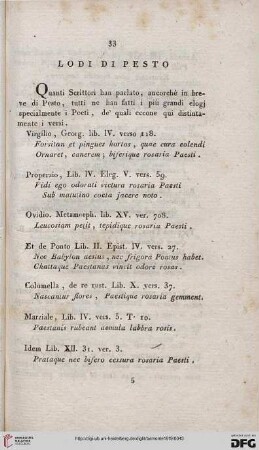 33
LODI DI PESTO
Quanti Scrittori han parlato, ancorchè in bre-
ve di Pesto, tutti ne han fatti i più grandi elogj
specialmente i Poeti, de' quali eccone qui distinta-
mente i versi.
Virgilio, Georg. lib. IV. verso 118.
Forsitan et pingues hortos, quae cura colendi
Ornaret, canerem; biferique rosaria Paesti.
Properzio, lib. IV. Eleg. V. vers. 59.
Vidi ego odorati victura rosaria Paesti
Sub matutino cocta jacere noto.
Ovidio. Metamorph. lib. XV. ver. 708.
Leucosiam petit, tepidique rosaria Paesti.
Et de Ponto Lib. II. Epist. IV. vers. 27.
Nec Babylon aestus, nec frigora Pontus habet.
Chaltaque Paestanas vincit odore rosas.
Columella, de re rust. Lib. X. vers. 37.
Nascantur flores, Paestique rosaria gemment.
Marziale, Lib. IV. vers. 5. T. 10.
Paestanis rubeant aemula labbra rosis.
Idem Lib. XII. 31. ver. 3.
Prataque nec bifero cessura rosaria Paesti.
5